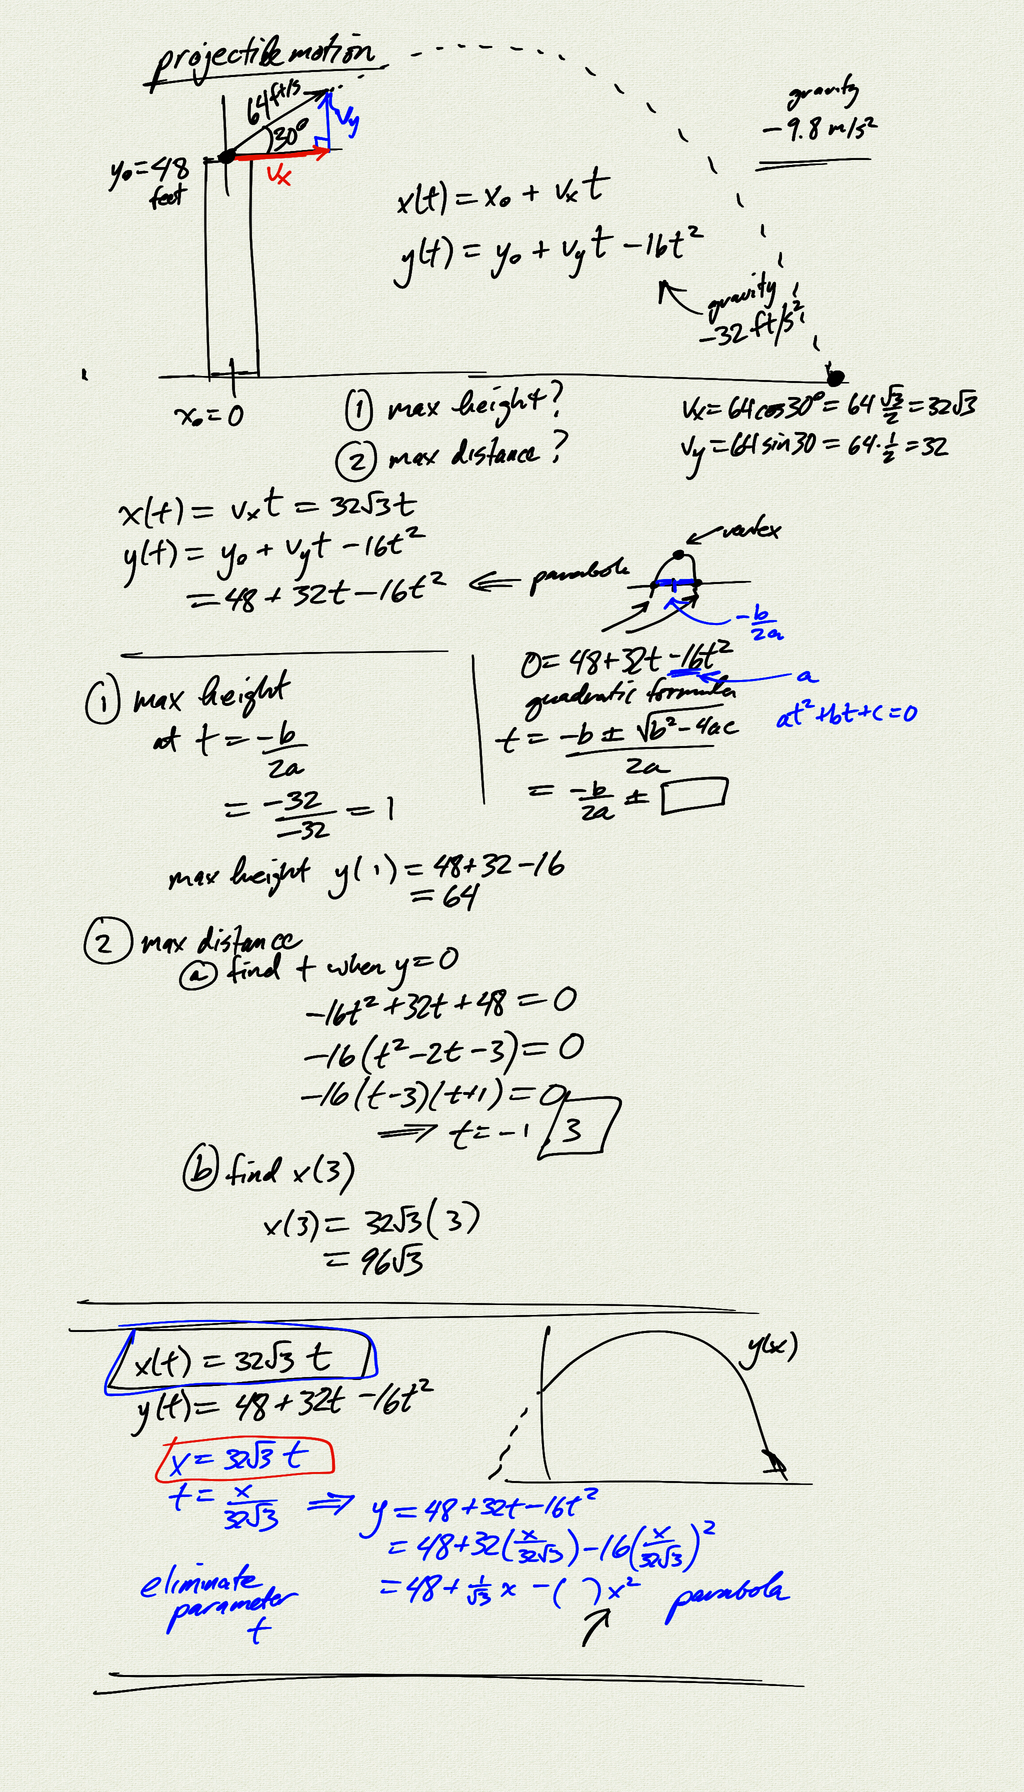 projectile motion
64 ft/s
30°
vy
vx
y₀=48
feet
gravity
-9.8 m/s²
x(t) = x₀ + vx t
y(t) = y₀ + vy t - 16t²
gravity
-32 ft/s²
x₀=0
① max height?
② max distance?
vx = 64 cos 30° = 64 √3/2 = 32√3
vy = 64 sin 30 = 64·1/2 = 32
x(t) = vx t = 32√3 t
y(t) = y₀ + vy t - 16t²
= 48 + 32t - 16t² ⇐ parabola
vertex
-b/2a
① max height
at t = -b/2a
= -32/-32 = 1
0 = 48+32t-16t²
a
quadratic formula
at²+bt+c=0
t = -b ± √b²-4ac / 2a
= -b/2a ±
max height y(1) = 48+32-16
= 64
② max distance
ⓐ find t when y=0
-16t²+32t+48 = 0
-16(t²-2t-3) = 0
-16(t-3)(t+1) = 0
⟹ t = -1, 3
ⓑ find x(3)
x(3) = 32√3(3)
= 96√3
x(t) = 32√3 t
y(t) = 48+32t-16t²
y(x)
x = 32√3 t
t = x/32√3 ⟹ y = 48+32t-16t²
= 48+32(x/32√3)-16(x/32√3)²
= 48+1/√3 x - ( )x² parabola
eliminate
parameter
t